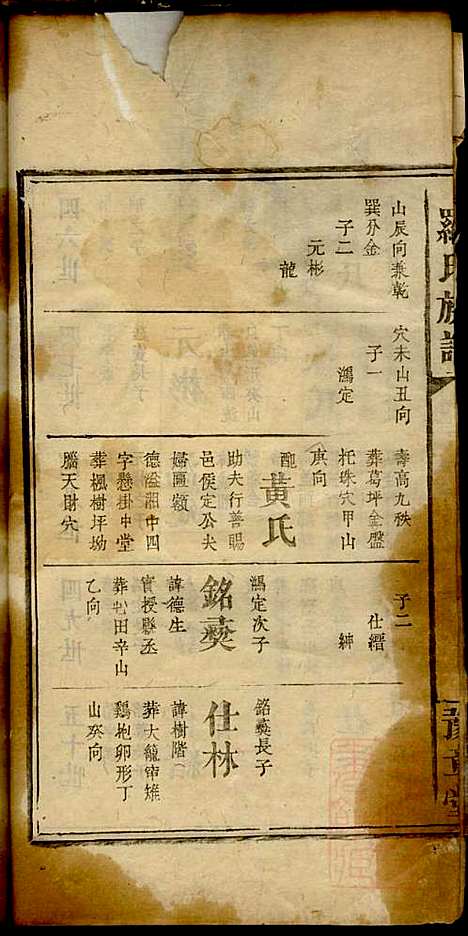 羅氏族譜
山辰向兼乾
巽分金
子二
元彬
龍
穴未山丑向
子一
鴻定
壽高九秩
葬葛坪金盤
托珠穴甲山
庚向
配
黃氏
助夫行善賜
邑侯定公夫
婦匾額
德溢湘中四
字懸掛中堂
葬楓樹坪坳
腦天財穴
子二
仕縉
紳
鴻定次子
銘䕫
諱德生
實授縣丞
葬屯田辛山
乙向
銘䕫長子
仕林
諱樹階
葬大龍宙雉
鷄抱卵形丁
山癸向
豫章堂
四六世
四七世
四九世
五十世